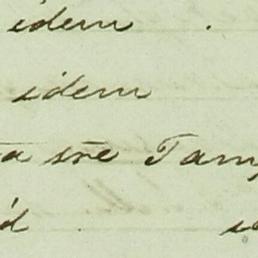 idem .
idem
a sre Tam
d id